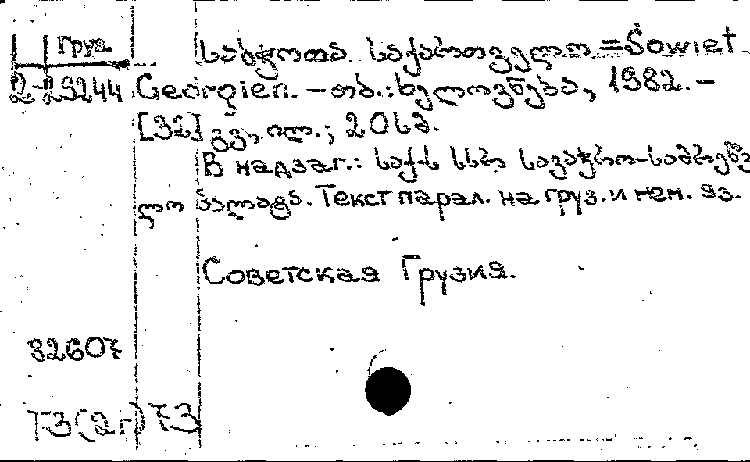 Груз.
საბჭოთა საქართველო = Sowiet
2-29244 Georgien. – თბ.: ხელოვნება, 1982. –
[32] გვ., ილ.; 20 სმ.
В надзаг.: საქ-ს სსრ სავაჭრო-სამრეწვე
ლო პალატა. Текст парал. на груз. и нем. яз.
Советская Грузия.
32607
Т3(2Г)73